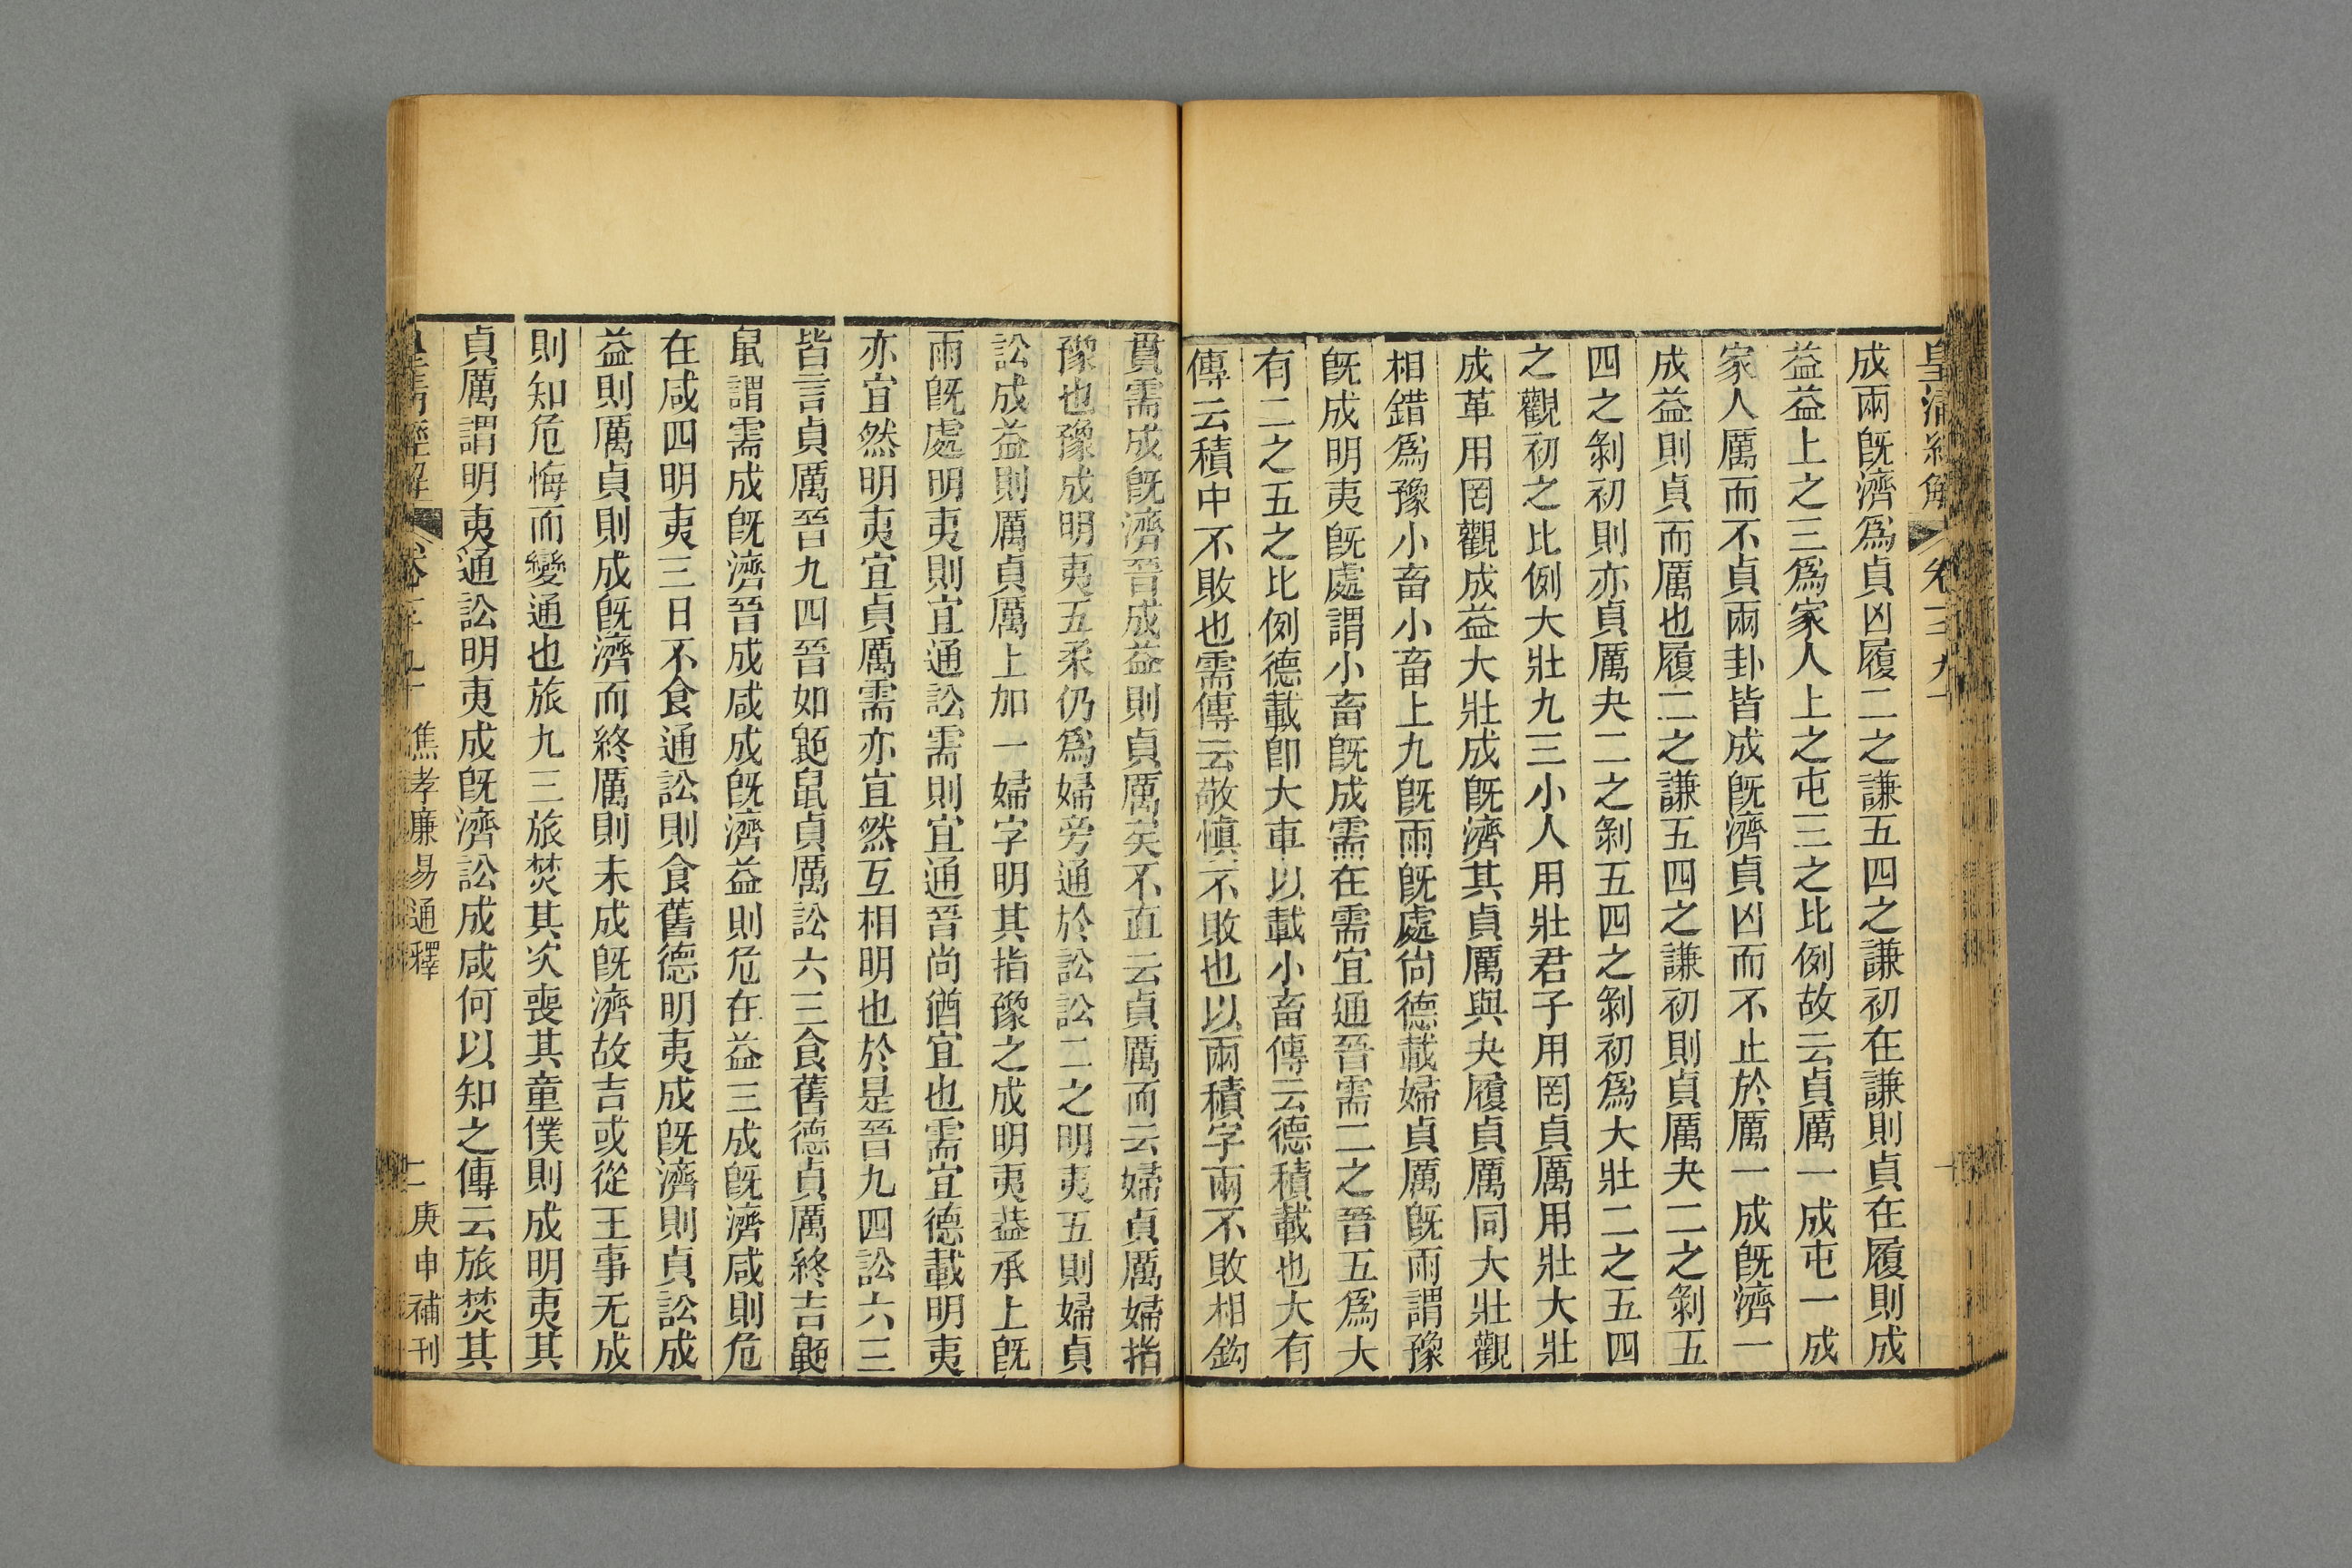 成兩旣濟爲貞凶履二之謙五四之謙初在謙則貞在履則成
益益上之三爲家人上之屯三之比例故云貞厲一成屯一成
家人厲而不貞兩卦皆成旣濟貞凶而不止於厲一成旣濟一
成益則貞而厲也履二之謙五四之謙初則貞厲夬二之剝五
四之剝初則亦貞厲夬二之剝五四之剝初爲大壯二之五四
之觀初之比例大壯九三小人用壯君子用罔貞厲用壯大壯
成革用罔觀成益大壯成旣濟其貞厲與夬履貞厲同大壯觀
相錯爲豫小畜小畜上九旣雨旣處尙德載婦貞厲旣雨謂豫
旣成明夷旣處謂小畜旣成需在需宜通晉需二之晉五爲大
有二之五之比例德載卽大車以載小畜傳云德積載也大有
傳云積中不敗也需傳云敬愼不敗也以兩積字兩不敗相鈎
貫需成旣濟晉成益則貞厲矣不直云貞厲而云婦貞厲婦指
豫也豫成明夷五柔仍爲婦旁通於訟訟二之明夷五則婦貞
訟成益則厲貞厲上加一婦字明其指豫之成明夷葢承上旣
雨旣處明夷則宜通訟需則宜通晉尚猶宜也需宜德載明夷
亦宜然明夷宜貞厲需亦宜然互相明也於是晉九四訟六三
皆言貞厲晉九四晉如鼫鼠貞厲訟六三食舊德貞厲終吉鼫
鼠謂需成旣濟晉成咸成旣濟益則危在益三成旣濟咸則危
在咸四明夷三日不食通訟則食舊德明夷成旣濟則貞訟成
益則厲貞則成旣濟而終厲則未成旣濟故吉或從王事无成
則知危悔而變通也旅九三旅焚其次喪其童僕則成明夷其
貞厲謂明夷通訟明夷成旣濟訟成咸何以知之傳云旅焚其
焦孝廉易通釋 二 庚申補刊